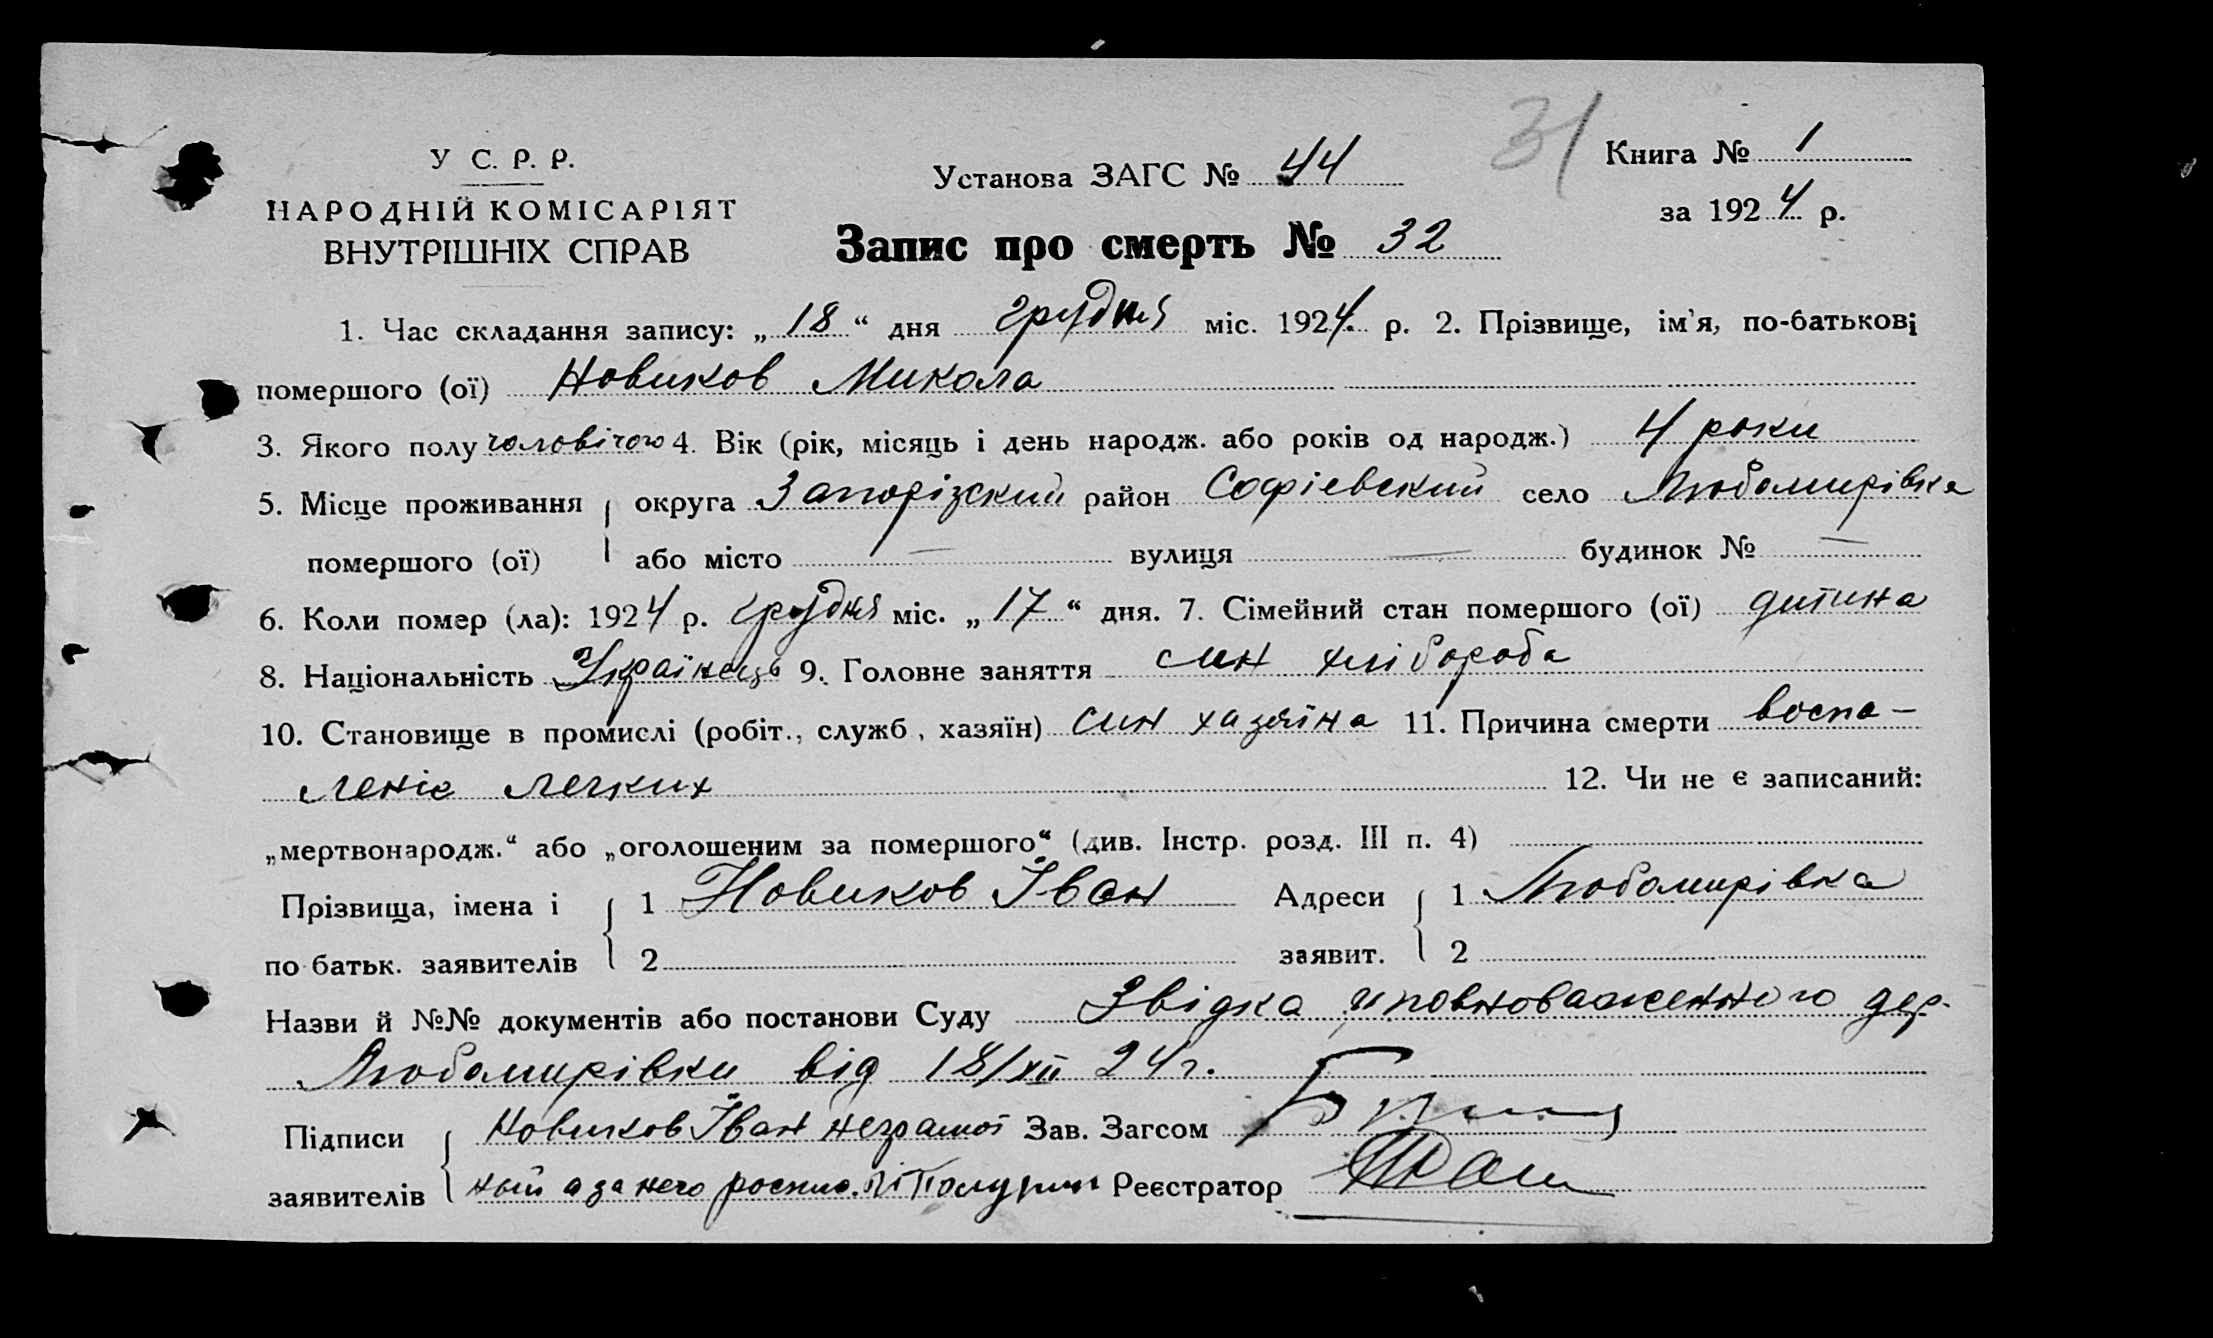 31
У С. Р. Р.
НАРОДНІЙ КОМІСАРІЯТ
ВНУТРІШНІХ СПРАВ
Установа ЗАГС № 44
Книга № 1
за 1924 р.
Запис про смерть № 32
1. Час складання запису: „18“ дня грудня міс. 1924 р. 2. Прізвище, ім'я, по-батькові
помершого (ої) Новиков Микола
3. Якого полу чоловічого 4. Вік (рік, місяць і день народж. або років од народж.) 4 роки
5. Місце проживання округа Запорізский район Софієвский село Любомирівка
помершого (ої) або місто — вулиця — будинок № —
6. Коли помер (ла): 1924 р. грудня міс. „17“ дня. 7. Сімейний стан помершого (ої) дитина
8. Національність Українець 9. Головне заняття син хлібороба
10. Становище в промислі (робіт., служб, хазяїн) син хазяїна 11. Причина смерти воспа-
леніє легких 12. Чи не є записаний:
„мертвонародж.“ або „оголошеним за помершого“ (див. Інстр. розд. III п. 4)
Прізвища, імена і 1 Новиков Іван Адреси 1 Любомирівка
по батьк. заявителів 2 заявит. 2
Назви й №№ документів або постанови Суду Звідка уповноваженного дер.
Любомирівки від 18/XII 24 г.
Підписи Новиков Іван неграмот Зав. Загсом
заявителів ный а за него роспис. Реєстратор